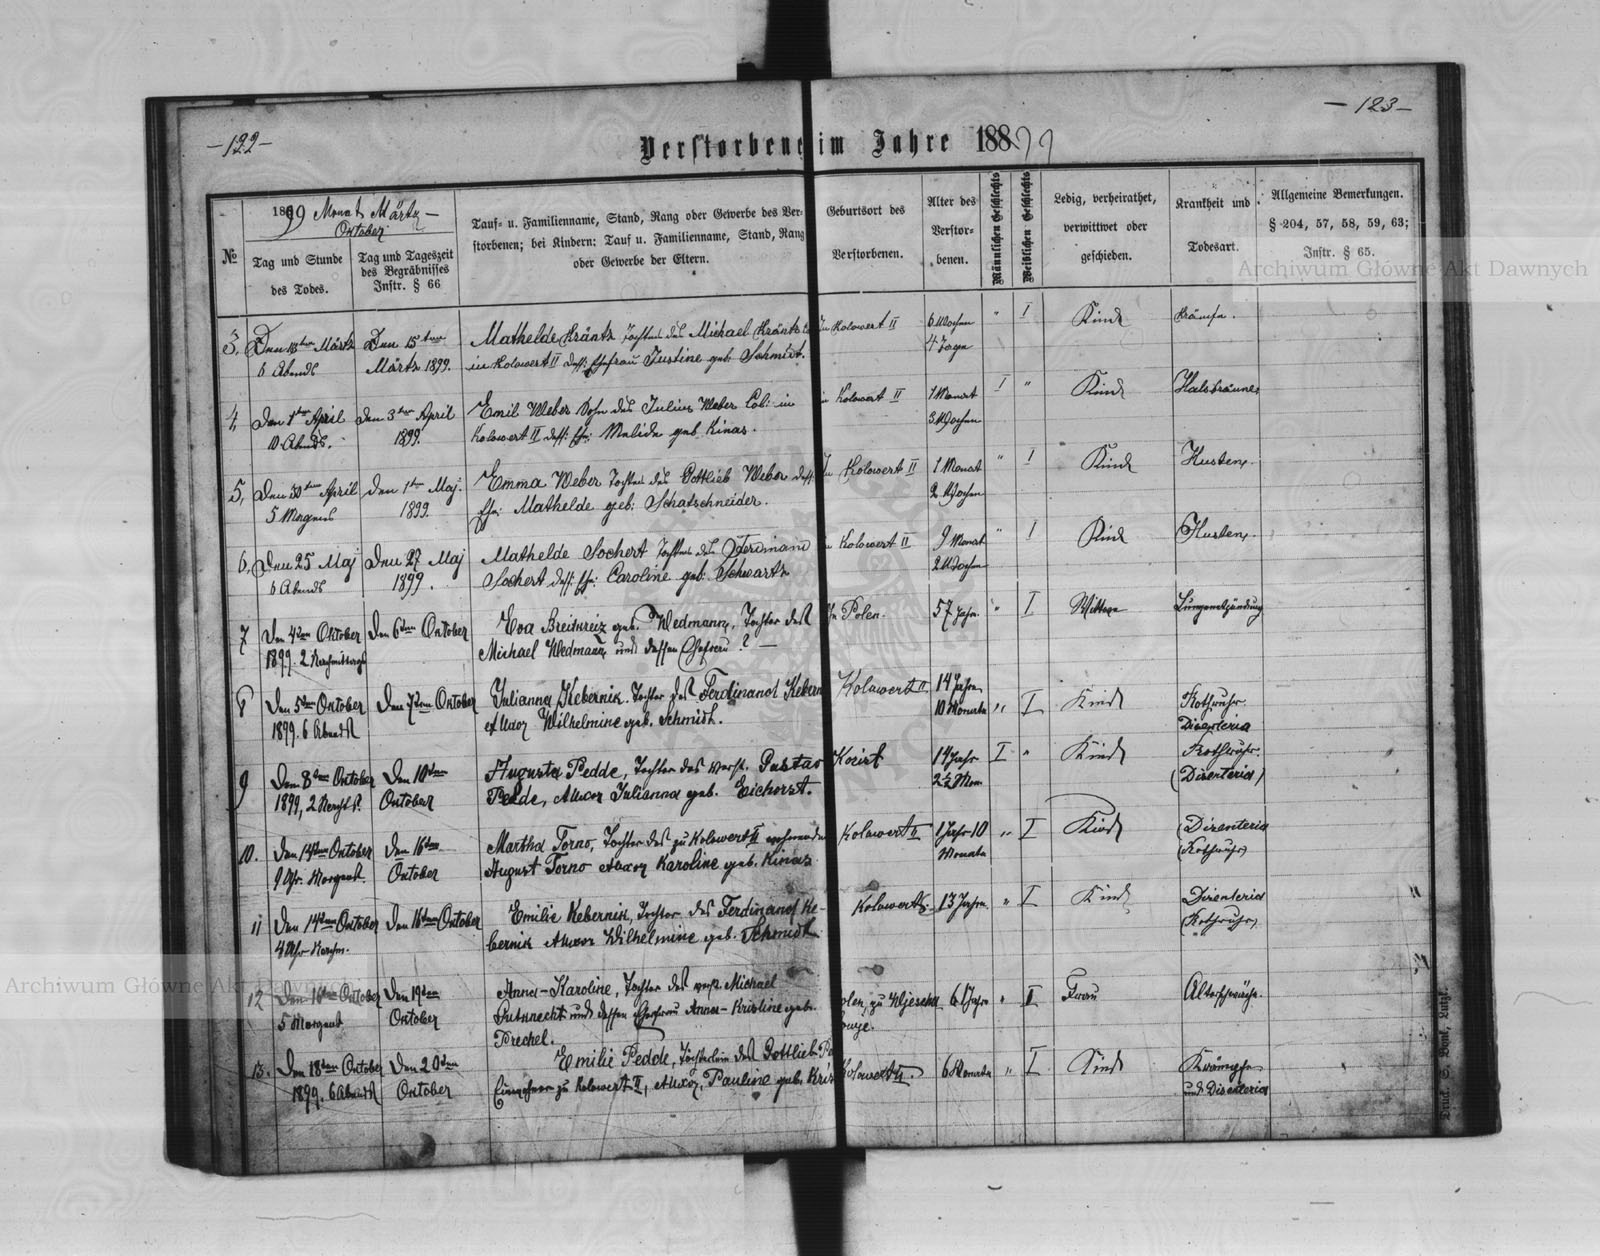 —122—
—123—
Verstorbene im Jahre 188 99
№
1899 Monat Märtz —
Oktober
Tag und Stunde
des Todes.
Tag und Tageszeit
des Begräbnisses
Instr. § 66
Tauf- u. Familienname, Stand, Rang oder Gewerbe des Ver-
storbenen; bei Kindern: Tauf u. Familienname, Stand, Rang
oder Gewerbe der Eltern.
Geburtsort des
Verstorbenen.
Alter des
Verstor-
benen.
Männlichen Geschlechts
Weiblichen Geschlechts
Ledig, verheirathet,
verwittwet oder
geschieden.
Krankheit und
Todesart.
Allgemeine Bemerkungen.
§ 204, 57, 58, 59, 63;
Instr. § 65.
3, Den 13ten Märtz Den 15ten Mathelde Kräntz Tochter des Michael Kräntz In Kolowert II 6 Wochen " I Kind Krämpfe.
6 Abends Märtz 1899. in Kolowert II dess: Ehefrau Justine geb: Schmidt. 4 Tage
4, Den 1ten April Den 3ten April Emil Weber Sohn des Julius Weber Col: in in Kolowert II 1 Monat I " Kind Halsbräune
10 Abends. 1899. Kolowert II dess: Ehe: Malide geb Kinas. 3 Wochen
5, Den 30ten April Den 1ten Maj. Emma Weber Tochter des Gottlieb Weber dess: In Kolowert II 1 Monat " I Kind Husten.
5 Morgens 1899. Ehe: Mathelde geb: Schatschneider. 2 Wochen
6, Den 25 Maj Den 27 Maj Mathelde Sochert Tochter des Ferdinand in Kolowert II 9 Monat " I Kind Husten.
6 Abends 1899. Sochert dess: Ehe: Caroline geb: Schwartz 2 Wochen
7 Den 4ten Oktober Den 6ten Oktober Eva Breitkreiz geb. Wedmann, Tochter des In Polen. 57 Jahr. " I Wittwe Lungenetzündung
1899. 2 Nachmittags Michael Wedmann und dessen Ehefrau ? —
8 Den 5ten Oktober Den 7ten Oktober Julianna Kebernik. Tochter des Ferdinand Kebern Kolowert II 14 Jahre " I Kind Rothruhr.
1899. 6 Abends Wilhelmine geb. Schmidt. 10 Monate Disenteria
9 Den 8ten Oktober Den 10ten Augusta Pedde, Tochter des verst. Gustav 14 Jahr I " Kind Rothruhr.
1899, 2 Oktober Pedde, Julianna geb. Eichorst. 2½ Mon. (Disenteria)
10. Den 14ten Oktober Den 16ten Martha Torno, Tochter des zu Kolowert II wohnenden Kolowert II 1 Jahr 10 " I Kind (Disenteria
9 Uhr. Morgens. Oktober August Torno Karoline geb. Kinas. Monate (Rothruhr)
11 Den 14ten Oktober Den 16ten Oktober Emilie Kebernik, Tochter des Ferdinand Ke- Kolowert 13 Jahre " I Kind Disenteria
4 Uhr Nachm. bernik Wilhelmine geb. Schmidt (Rothruhr)
12 Den 16ten Oktober Den 19ten Anna-Karoline, Tochter des verst. Michael 61 Jahr " I Frau Altersschwäche.
5 Morgens Oktober Gutknecht und dessen Ehefrau Anna-Kristine geb.
Prechel.
13. Den 18ten Oktober Den 20ten Emilie Pedde, Töchterlein des Gottlieb Kolowert II. 6 Monate " I Kind Krämpfe
1899. 6 Abends Oktober zu Kolowert II, Pauline geb. und Disenteria
Archiwum Główne Akt Dawnych
Archiwum Główne Akt Dawnych